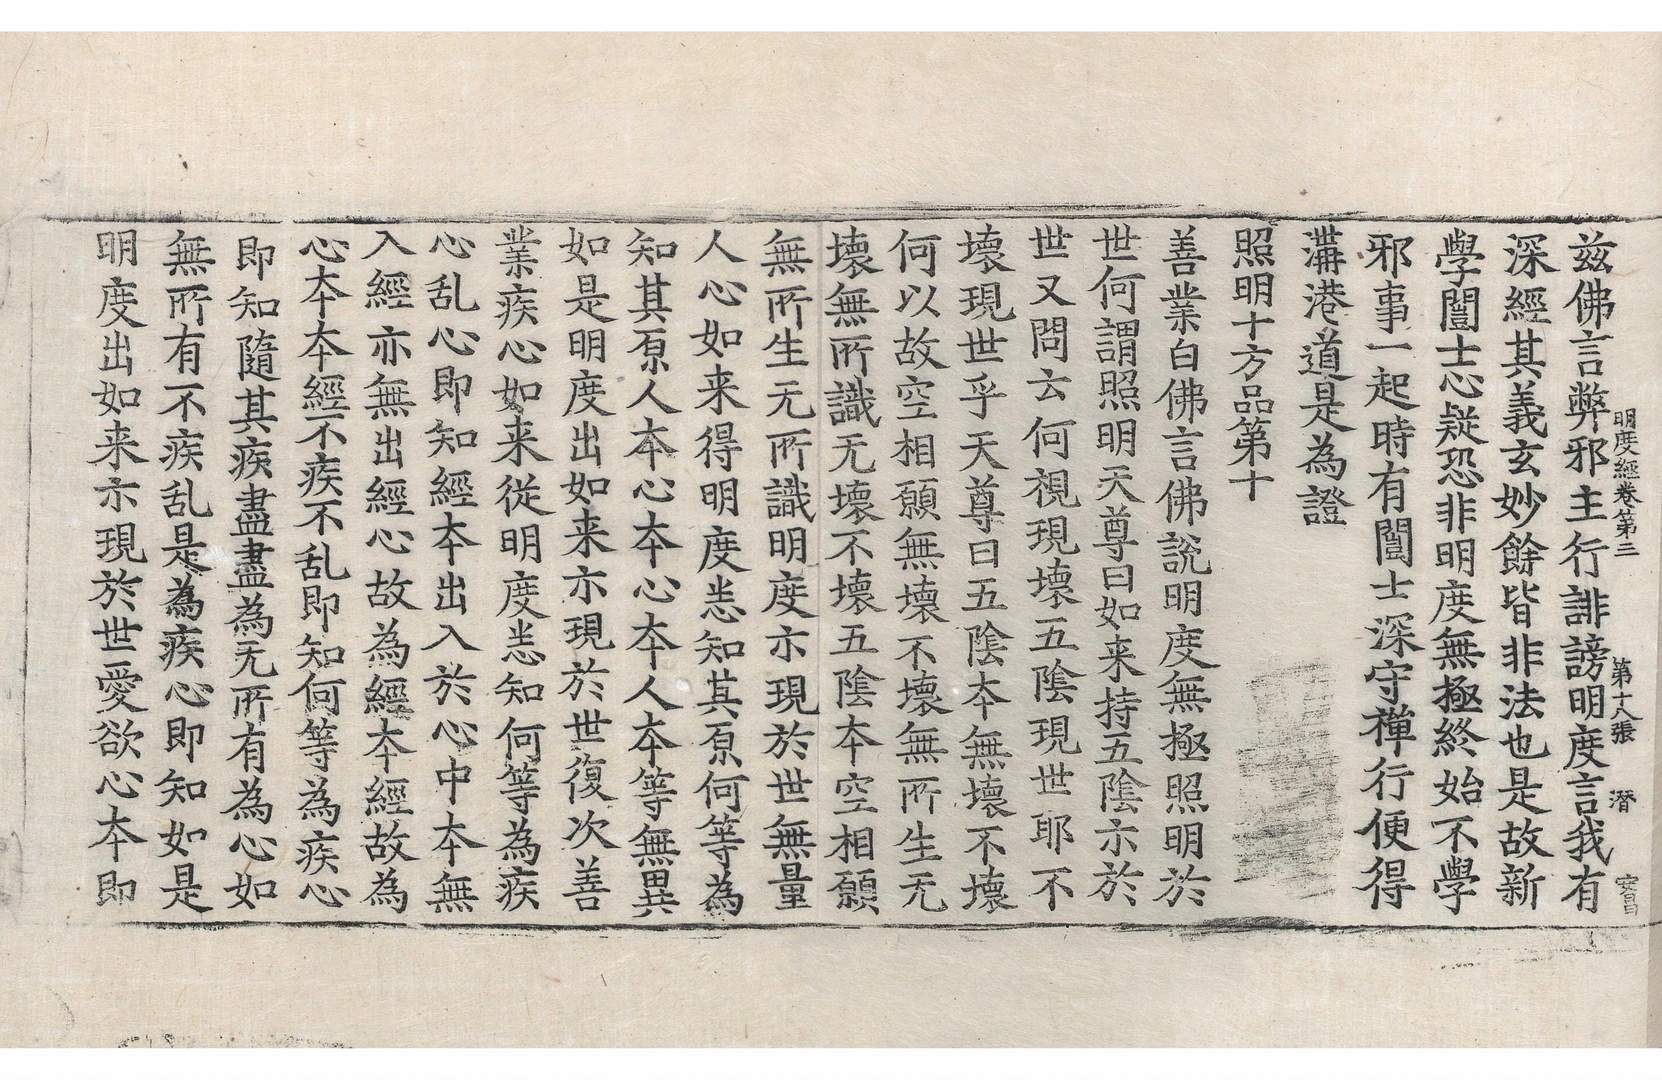 明度經卷第三　第十八張　潛
兹佛言弊邪主行誹謗明度言我有
深經其義玄妙餘皆非法也是故新
學闓士心疑恐非明度無極終始不學
邪事一起時有闓士深守禪行便得
溝港道是為證
照明十方品第十
善業白佛言佛說明度無極照明於
世何謂照明天尊曰如来持五陰示於
世又問云何視現壞五陰現世耶不
壞現世乎天尊曰五陰本無壞不壞
何以故空相願無壞不壞無所生无
壞無所識无壞不壞五陰本空相願
無所生无所識明度示現於世無量
人心如来得明度悉知其原何等為
知其原人本心本心本人本等無異
如是明度出如来示現於世復次善
業疾心如来從明度悉知何等為疾
心乱心即知經本出入於心中本無
入經亦無出經心故為經本經故為
心本本經不疾不乱即知何等為疾心
即知隨其疾盡盡為无所有為心如
無所有不疾乱是為疾心即知如是
明度出如来示現於世愛欲心本即